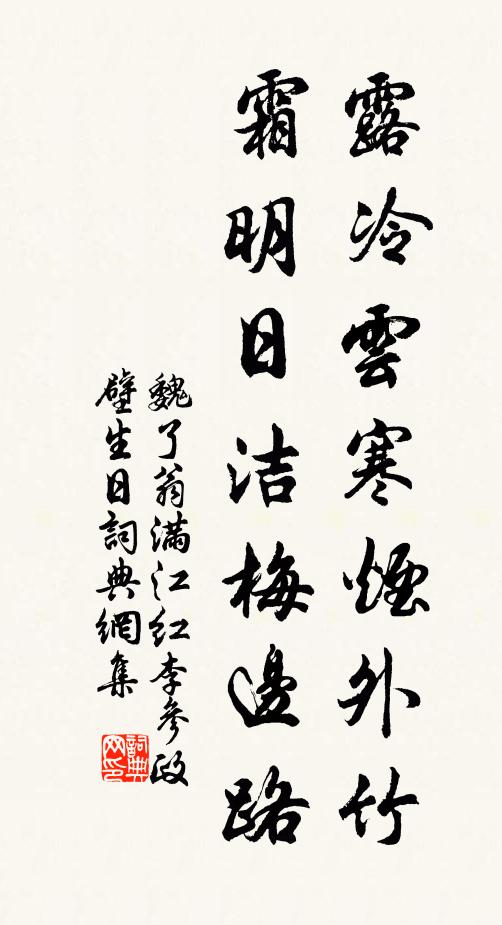 露冷雲寒煙外竹
霜明日洁梅邊路
魏了翁滿江红李參政
壁生日詞典網集
詞典
网印